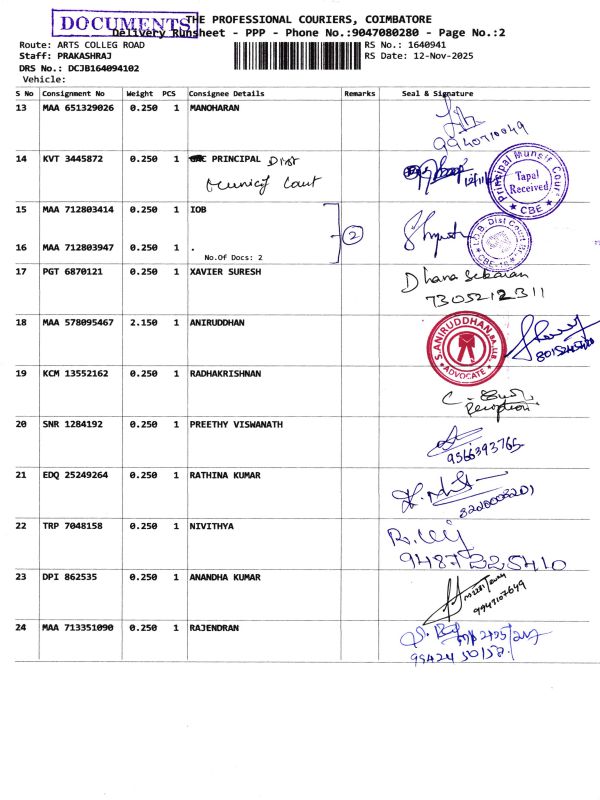 DOCUMENTS
THE PROFESSIONAL COURIERS, COIMBATORE
Delivery Runsheet - PPP - Phone No.:9047080280 - Page No.:2
Route: ARTS COLLEG ROAD
RS No.: 1640941
Staff: PRAKASHRAJ
RS Date: 12-Nov-2025
DRS No.: DCJB164094102
Vehicle:
S No Consignment No Weight PCS Consignee Details Remarks Seal & Signature
13 MAA 651329026 0.250 1 MANOHARAN
9940710049
14 KVT 3445872 0.250 1 PRINCIPAL Dist
Munsif Court
12/11/
Principal Munsif Court
Tapal
Received
CBE
15 MAA 712803414 0.250 1 IOB
2
16 MAA 712803947 0.250 1 .
No.Of Docs: 2
I.O.B. Dist Court
CBE-18
17 PGT 6870121 0.250 1 XAVIER SURESH
Dhana Sekaran
7305212311
18 MAA 578095467 2.150 1 ANIRUDDHAN
S.ANIRUDDHAN, BA., LLB.
ADVOCATE
19 KCM 13552162 0.250 1 RADHAKRISHNAN
Reception
20 SNR 1284192 0.250 1 PREETHY VISWANATH
9566393765
21 EDQ 25249264 0.250 1 RATHINA KUMAR
22 TRP 7048158 0.250 1 NIVITHYA
9487225410
23 DPI 862535 0.250 1 ANANDHA KUMAR
9947107649
24 MAA 713351090 0.250 1 RAJENDRAN
9942450158